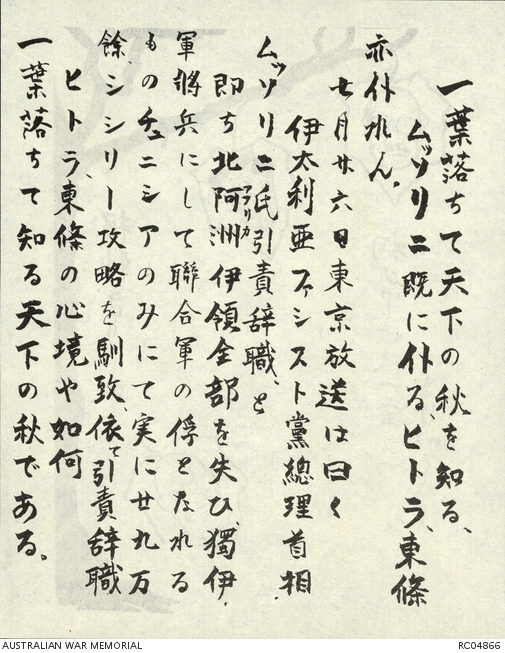 一葉落ちて天下の秋を知る、
ムッソリニ既に仆る、ヒトラ、東條
亦仆れん。
七月廿六日東京放送は曰く
伊太利亜ファシスト黨總理首相
ムッソリニ氏引責辞職、と
即ち北阿洲アフリカ伊領全部を失ひ獨伊
軍將兵にして聯合軍の俘となれる
ものチュニシアのみにて実に廿九万
餘、シシリー攻略を馴致、依て引責辞職
ヒトラ、東條の心境や如何
一葉落ちて知る天下の秋である。
AUSTRALIAN WAR MEMORIAL
RC04866